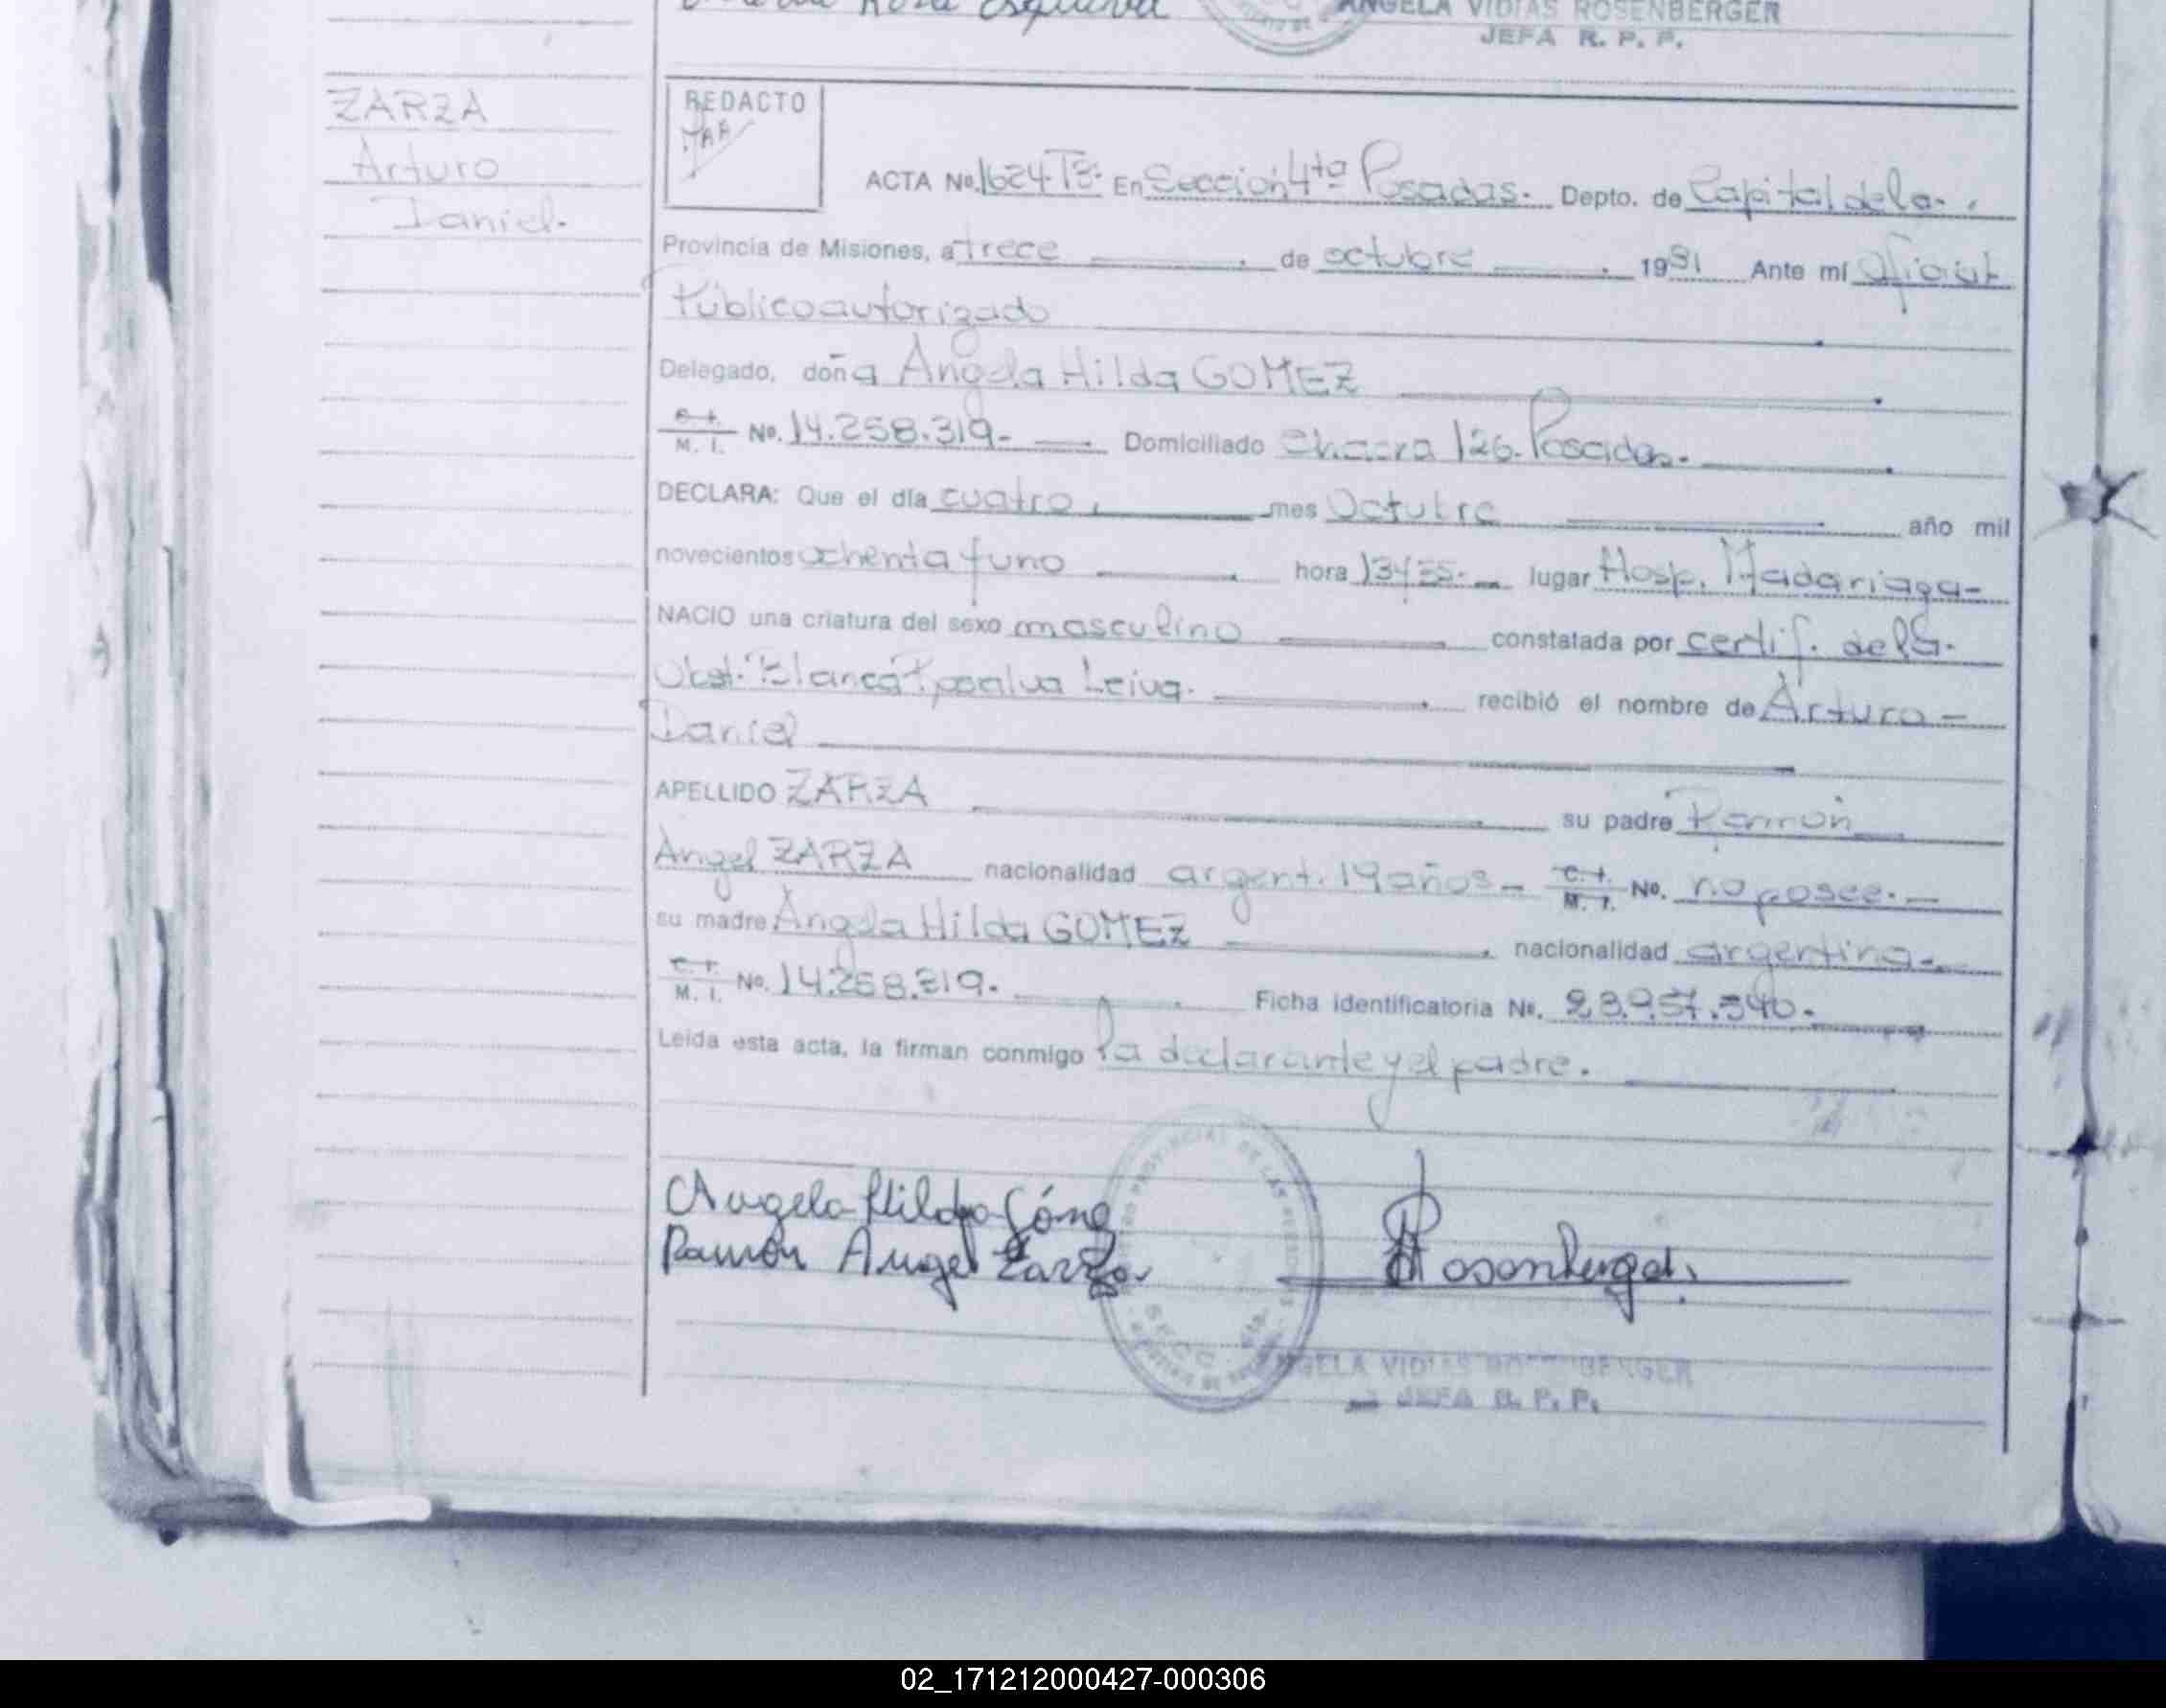 Rosa Esquivel
ANGELA VIDIAS ROSENBERGER
JEFA R. P. P.
ZARZA
Arturo
Daniel.
REDACTO
ACTA No. 1624 Tº3. En Sección 4ta Posadas. Depto. de Capital de la
Provincia de Misiones, a trece de octubre 1981 Ante mí Oficial
Público autorizado
Delegado, doña Angela Hilda GOMEZ
C. I. M. I. No. 14.258.319.- Domiciliado Chacra 126. Posadas.
DECLARA: Que el día cuatro mes Octubre año mil
novecientos ochenta y uno hora 13 y 35. lugar Hosp. Madariaga-
NACIO una criatura del sexo masculino constatada por certif. de la
Obst. Blanca Leiva. recibió el nombre de Arturo -
Daniel
APELLIDO ZARZA su padre Ramón
Angel ZARZA nacionalidad argent. 19 años - C. I. M. I. No. no posee. -
su madre Angela Hilda GOMEZ nacionalidad argentina.
C. I. M. I. No. 14.258.319. Ficha identificatoria No. 28.957.390.
Leída esta acta, la firman conmigo la declarante y el padre.
Angela Hilda Gómez
Ramón Angel Zarza
Rosenberger
ANGELA VIDIAS ROSENBERGER
JEFA R. P. P.
02_171212000427-000306